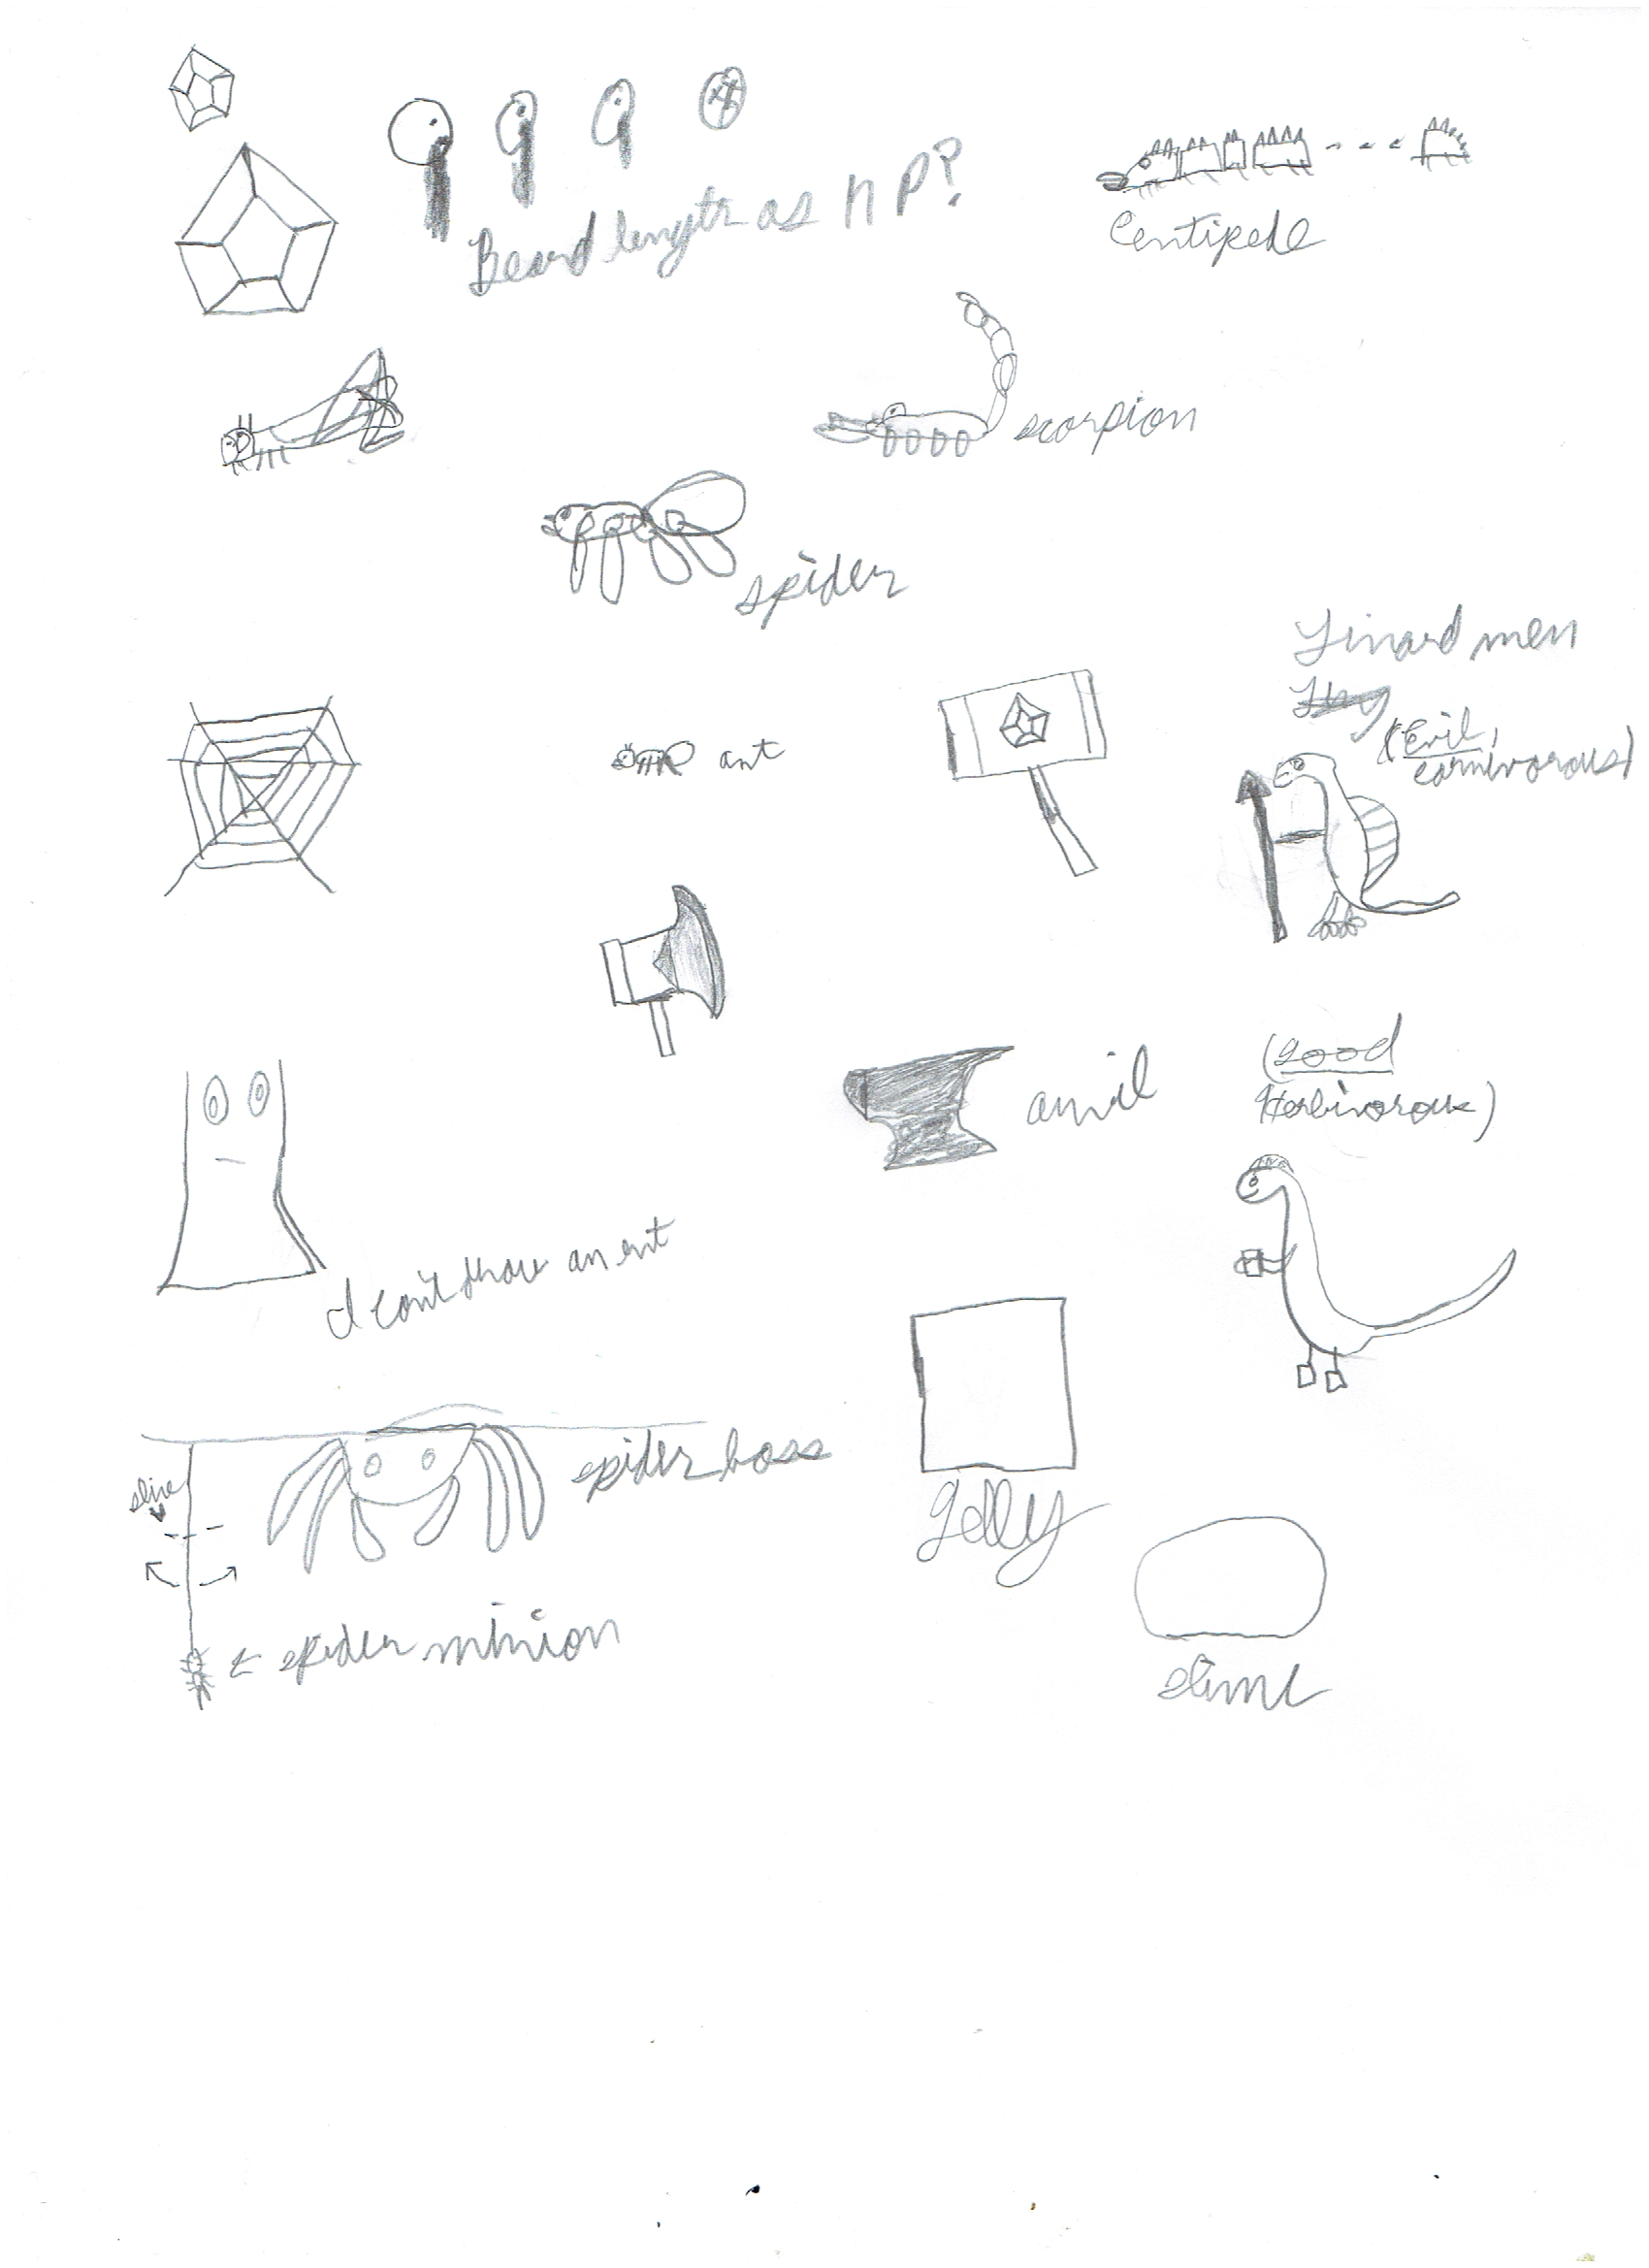 Beard length as HP?
Centipede
scorpion
spider
Lizard men
(Evil,
carnivorous)
ant
(Good
Herbivorous)
anvil
I can't draw an ent
spider boss
Jelly
← spider minion
slime